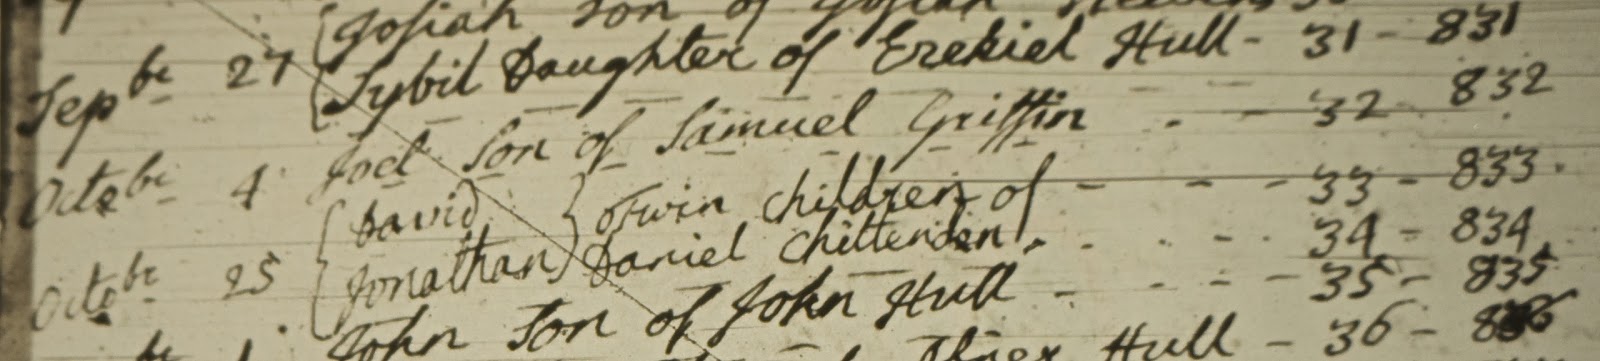 Josiah Son of Josiah Stevens 30
Sepbr 27 Sybil Daughter of Ezekiel Hull - 31 - 831
Octobr 4 Joel Son of Samuel Griffin - - 32 - 832
David } twin children of - - - 33 - 833.
Octobr 25 Jonathan } Daniel Chittenden. - - - 34 - 834
John Son of John Hull - - - - 35 - 835
Hull - 36 - 836